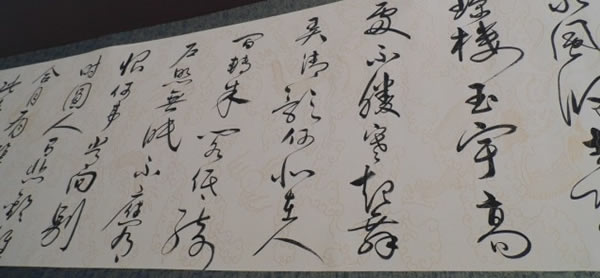 瓊樓玉宇高
處不勝寒起舞
弄清影何似在人
間轉朱閣低綺
戶照無眠不應有
恨何事長向別
時圓人有悲歡離
合月有